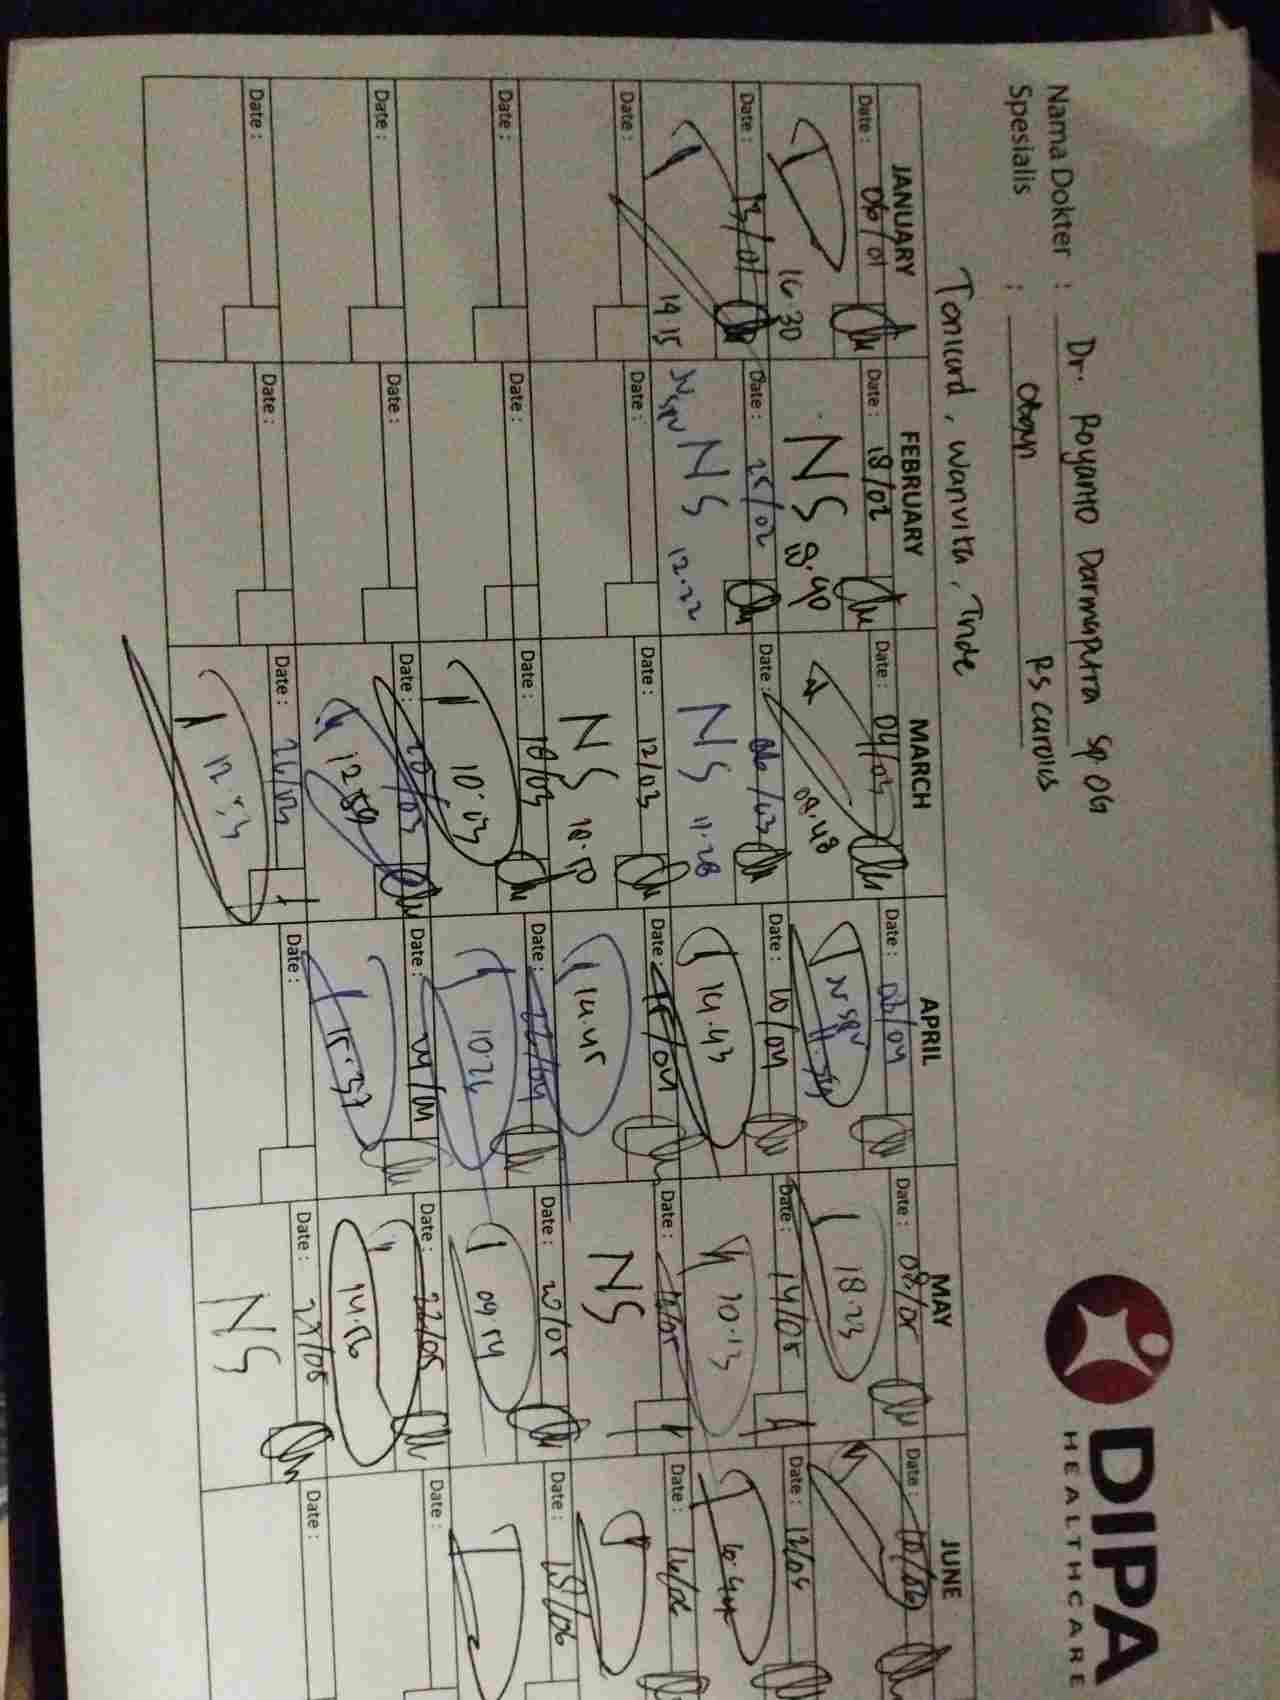 DIPA
HEALTHCARE
Nama Dokter : Dr. Royanto Darmaputra Sp OG
Spesialis : Obgyn RS Carolus
Tonicard, Wanvita, Inde
JANUARY FEBRUARY MARCH APRIL MAY JUNE
Date : 06/01 Date : 18/02 Date : 04/03 Date : 08/05 Date : 10/06
16.30 NS 18.40 08.48 N SPV 18.23
Date : 13/01 Date : 25/02 Date : 06/03 Date : 10/04 Date : 14/05 Date : 12/06
19.15 N SPV NS 12.22 NS 11.28 14.43 10.13
Date : Date : Date : 12/03 Date : 15/04 Date : Date :
NS 14.45 NS
Date : Date : Date : 18/03 Date : 22/04 Date : 20/05 Date : 18/06
10.03 09.54
Date : Date : Date : 20/03 Date : 24/04 Date : 22/05 Date :
12.59 15.37 14.56
Date : Date : Date : 26/03 Date : Date : Date :
NS